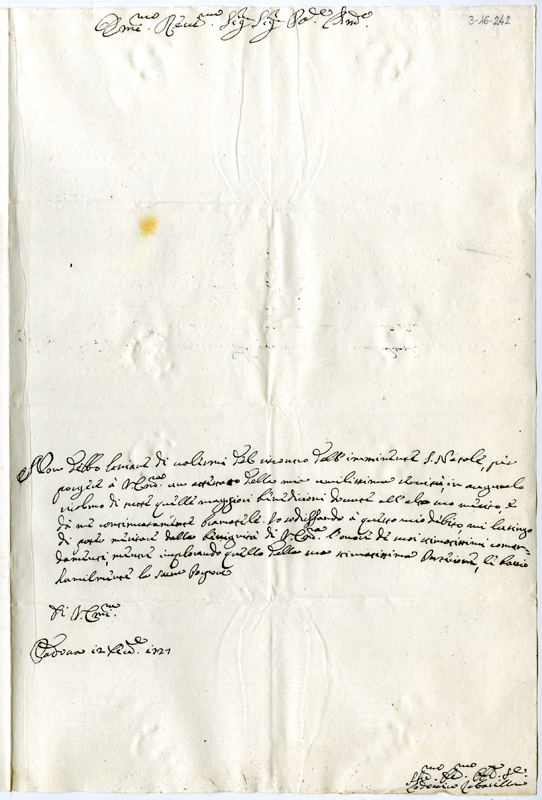 3-16-242
Em.mo Rev.mo Sig. Sig. P.ne Col.mo
Non debbo lasciare di valermi del incontro dell'imminente S. Natale, per
porgere à V. Em.za un attestato della mia umilissima servitù, in augurarlo
ricolmo di tutte quelle maggiori benedizioni dovute all'alto suo merito, e
da me continuatamente bramatele. Io sodisfando à questo mio debito, mi lusingo
di poter meritare dalla benignità di V. Em.za l'onore de suoi stimatissimi coman-
damenti, mentre implorando quello della sua stimatissima Protezione, le bacio
humilmente la sacra Porpora
Di V. Em.za
Padova 12 Xbre 1727